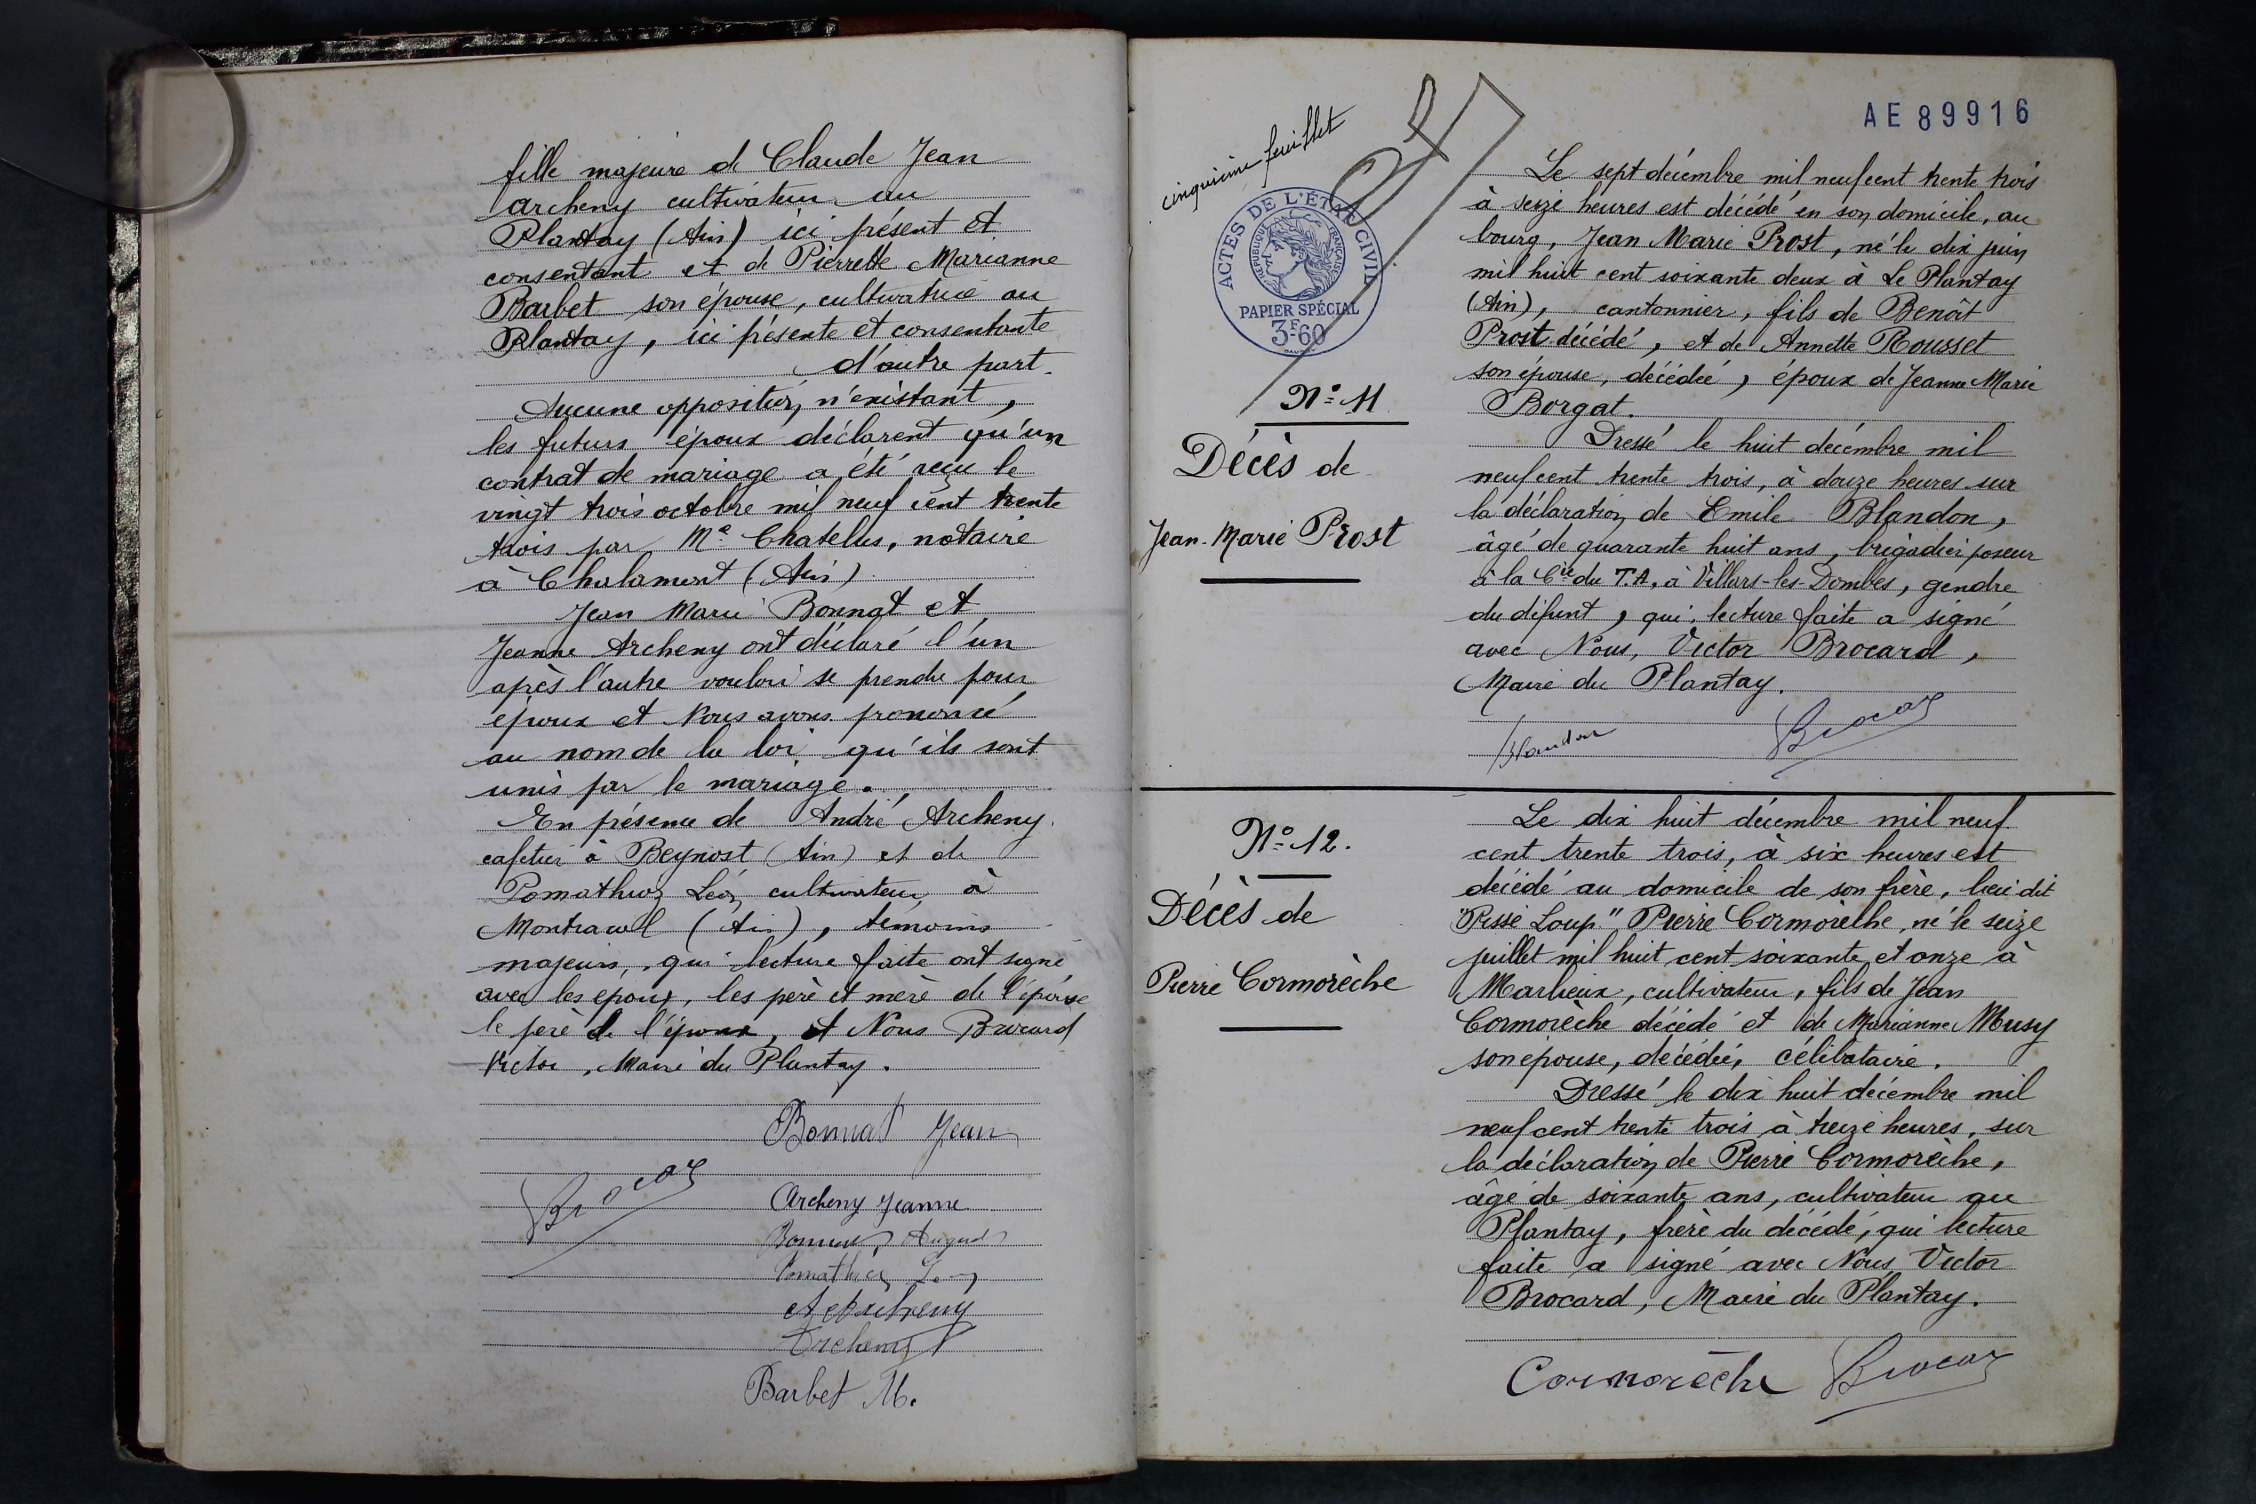 fille majeure de Claude Jean
Archeny cultivateur au
Plantay (Ain) ici présent et
consentant et de Pierrette Marianne
Barbet son épouse, cultivatrice au
Plantay, ici présente et consentante
d'autre part.
Aucune opposition n'existant,
les futurs époux déclarent qu'un
contrat de mariage a été reçu le
vingt trois octobre mil neuf cent trente
trois par Me Chatelus, notaire
à Chalamont (Ain)
Jean Marie Bonnat et
Jeanne Archeny ont déclaré l'un
après l'autre vouloir se prendre pour
époux et Nous avons prononcé
au nom de la loi qu'ils sont
unis par le mariage.
En présence de André Archeny
cafetier à Beynost (Ain) et de
Pomathioz Léon cultivateur à
Montracol (Ain), témoins
majeurs, qui lecture faite ont signé
avec les époux, les père et mère de l'épouse
le père de l'époux, et Nous Brocard
Victor, Maire du Plantay.
Bonnat Jean
Brocard
Archeny Jeanne
Archeny
Barbet M.
cinquième feuillet
ACTES DE L'ÉTAT CIVIL
RÉPUBLIQUE FRANÇAISE
PAPIER SPÉCIAL
3F-60
N° 11
Décès de
Jean-Marie Prost
AE 89916
Le sept décembre mil neuf cent trente trois
à seize heures est décédé en son domicile, au
bourg, Jean Marie Prost, né le dix juin
mil huit cent soixante deux à Le Plantay
(Ain), cantonnier, fils de Benoît
Prost décédé, et de Annette Rousset
son épouse, décédée, époux de Jeanne Marie
Borgat.
Dressé le huit décembre mil
neuf cent trente trois, à douze heures sur
la déclaration de Emile Blandon,
âgé de quarante huit ans, brigadier poseur
à la Cie du T.A. à Villars-les-Dombes, gendre
du défunt, qui, lecture faite a signé
avec Nous, Victor Brocard,
Maire du Plantay.
Blandon Brocard
N° 12.
Décès de
Pierre Cormorèche
Le dix huit décembre mil neuf
cent trente trois, à six heures est
décédé au domicile de son frère, lieu dit
"Pisse Loup" Pierre Cormorèche, né le seize
juillet mil huit cent soixante et onze à
Marlieux, cultivateur, fils de Jean
Cormorèche décédé et de Marianne Musy
son épouse, décédée, célibataire.
Dressé le dix huit décembre mil
neuf cent trente trois à treize heures, sur
la déclaration de Pierre Cormorèche,
âgé de soixante ans, cultivateur au
Plantay, frère du décédé, qui lecture
faite a signé avec Nous Victor
Brocard, Maire du Plantay.
Cormorèche Brocard